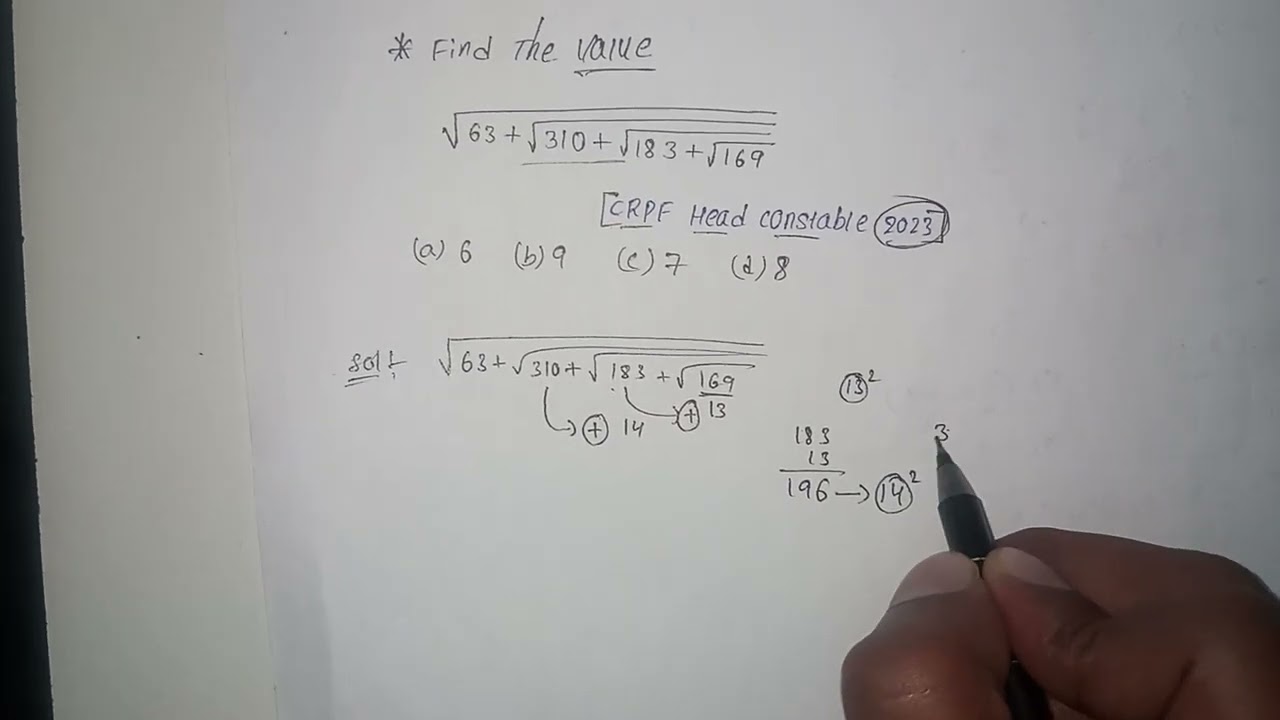 * Find The value
√63 + √310 + √183 + √169
[CRPF Head constable 2023]
(a) 6 (b) 9 (c) 7 (d) 8
Sol:- √63 + √310 + √183 + √169
+ 14 + 13
13²
183
13
196 → 14²
3